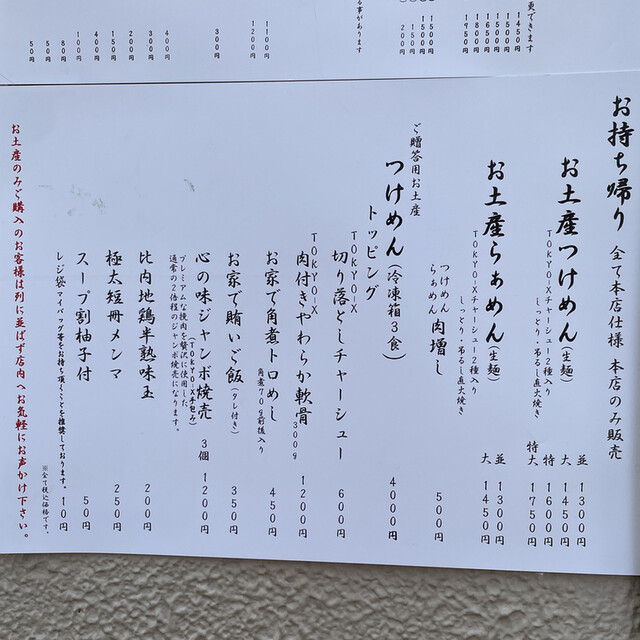 更できます
1450円
1500円
1500円
1800円
1750円
1500円
1500円
150円
200円
る事があります
1100円
1200円
300円
400円
300円
200円
150円
400円
100円
80円
50円
50円
お持ち帰り 全て本店仕様 本店のみ販売
お土産つけめん(生麺)
TOKYO-Xチャーシュー2種入り
しっとり・吊るし直火焼き
並 1300円
大 1450円
特 1600円
特大 1750円
お土産らぁめん(生麺)
TOKYO-Xチャーシュー2種入り
しっとり・吊るし直火焼き
並 1300円
大 1450円
つけめん
らぁめん 肉増し 500円
ご贈答用お土産
つけめん(冷凍箱3食) 4000円
トッピング
TOKYO-X
切り落としチャーシュー 600円
TOKYO-X
肉付きやわらか軟骨 300g 1200円
お家で角煮トロめし 450円
角煮70g前後入り
お家で賄いご飯(タレ付き) 350円
心の味ジャンボ焼売 3個 1200円
(TOKYO-X包み)
プレミアムな豚肉を贅沢に使用した、
通常の2倍程のジャンボ焼売になります。
比内地鶏半熟味玉 200円
極太短冊メンマ 250円
スープ割柚子付 50円
レジ袋 マイバッグ等をお持ち頂くことを推奨しております。 10円
※全て税込価格です。
お土産のみご購入のお客様は列に並ばず店内へお気軽にお声かけ下さい。